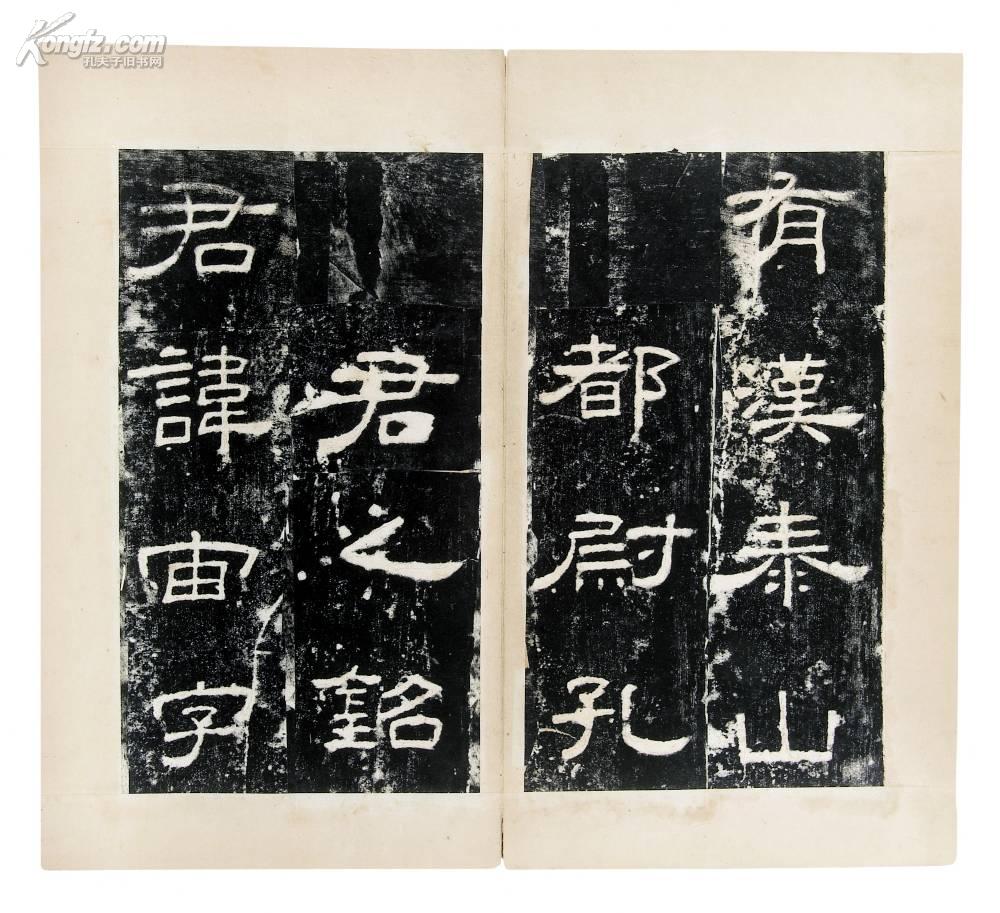 有漢泰山
都尉孔
君之銘
君諱宙字
Kongfz.com
孔夫子旧书网